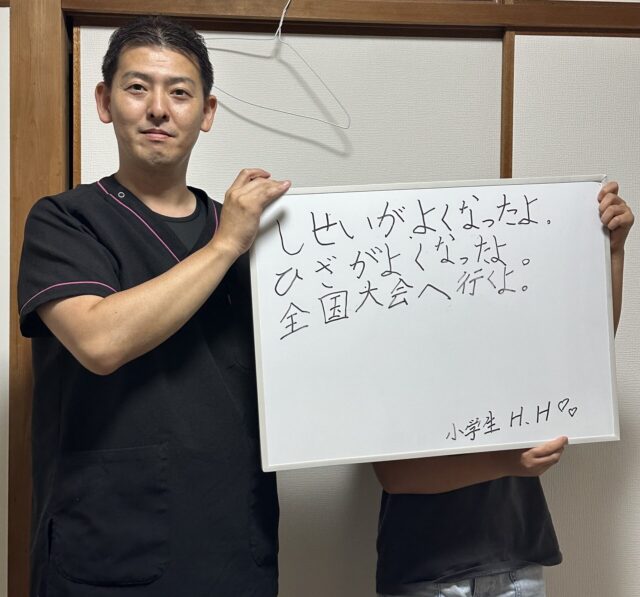 しせいがよくなったよ。
ひざがよくなったよ。
全国大会へ行くよ。
小学生 H.H♡♡